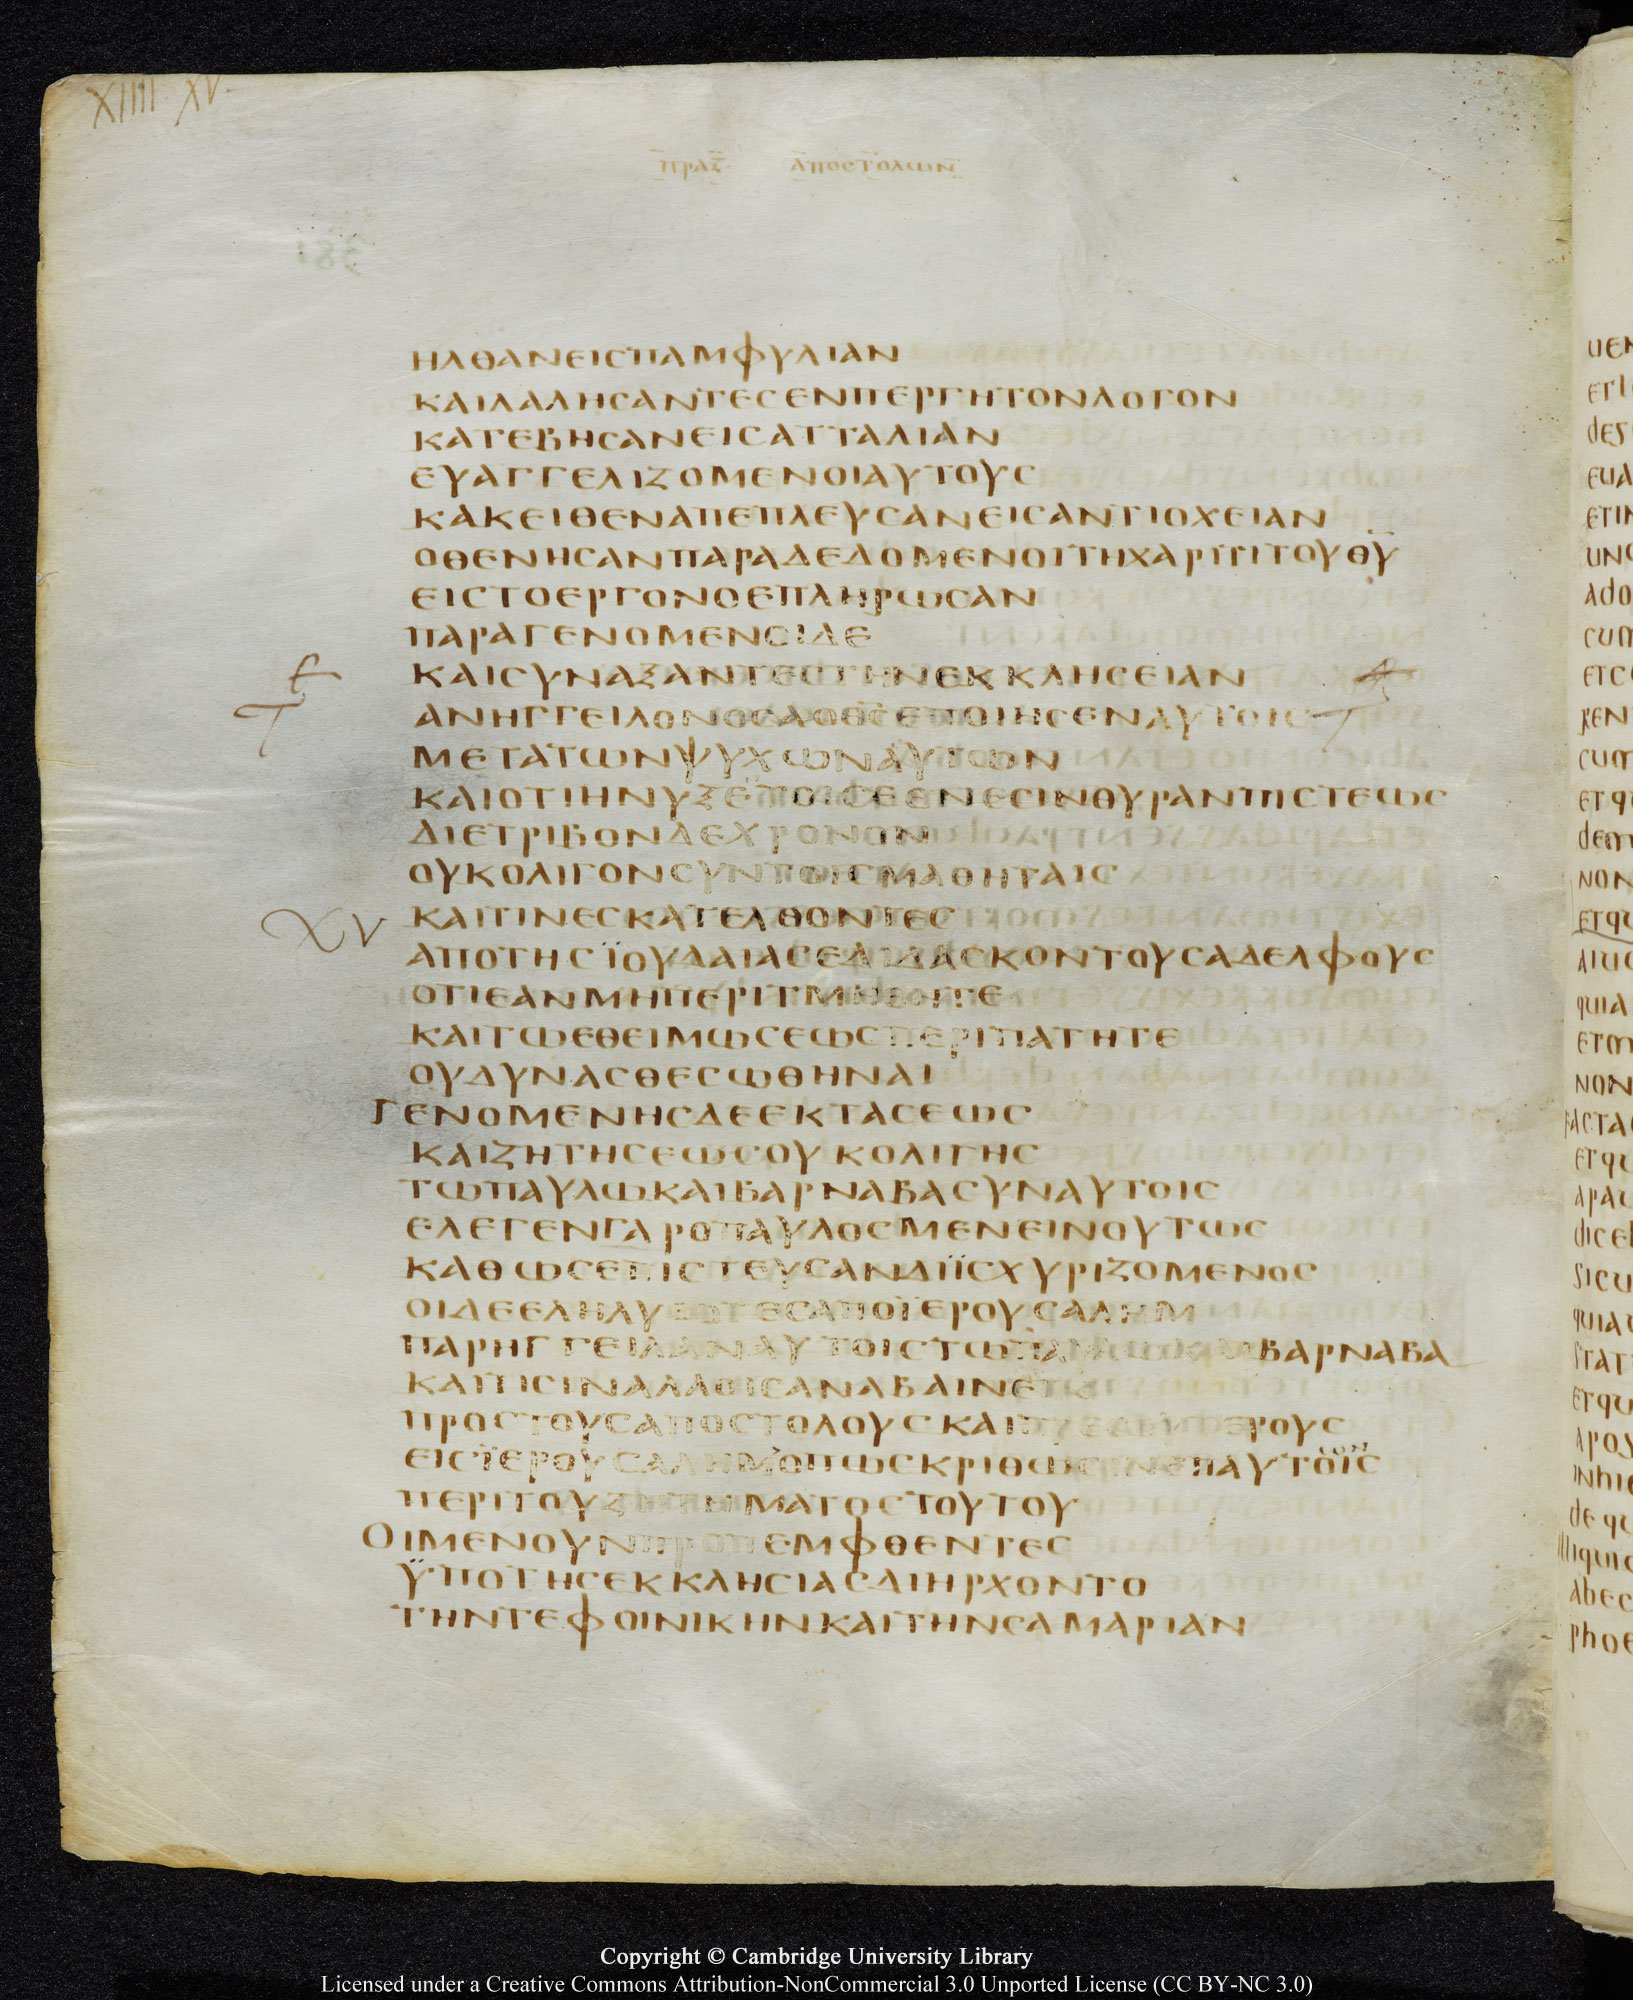 XIIII XV
ΠΡΑΞ ΑΠΟCΤΟΛΩΝ
381
ΗΛΘΑΝΕΙCΠΑΜΦΥΛΙΑΝ
ΚΑΙΛΑΛΗCΑΝΤΕCΕΝΠΕΡΓΗΤΟΝΛΟΓΟΝ
ΚΑΤΕΒΗCΑΝΕΙCΑΤΤΑΛΙΑΝ
ΕΥΑΓΓΕΛΙΖΟΜΕΝΟΙΑΥΤΟΥC
ΚΑΚΕΙΘΕΝΑΠΕΠΛΕΥCΑΝΕΙCΑΝΤΙΟΧΕΙΑΝ
ΟΘΕΝΗCΑΝΠΑΡΑΔΕΔΟΜΕΝΟΙΤΗΧΑΡΙΤΙΤΟΥΘ̅Υ̅
ΕΙCΤΟΕΡΓΟΝΟΕΠΛΗΡΩCΑΝ
ΠΑΡΑΓΕΝΟΜΕΝΟΙΔΕ
ΚΑΙCΥΝΑΞΑΝΤΕCΤΗΝΕΚΚΛΗCΕΙΑΝ
ΑΝΗΓΓΕΙΛΟΝΟCΑΟΘ̅C̅ΕΠΟΙΗCΕΝΑΥΤΟΙC
ΜΕΤΑΤΩΝΨΥΧΩΝΑΥΤΩΝ
ΚΑΙΟΤΙΗΝΥΞΕΤΟΙCΕΘΝΕCΙΝΘΥΡΑΝΠΙCΤΕΩC
ΔΙΕΤΡΙΒΟΝΔΕΧΡΟΝΟΝ
ΟΥΚΟΛΙΓΟΝCΥΝΤΟΙCΜΑΘΗΤΑΙC
XV ΚΑΙΤΙΝΕCΚΑΤΕΛΘΟΝΤΕC
ΑΠΟΤΗCΪΟΥΔΑΙΑCΕΔΙΔΑCΚΟΝΤΟΥCΑΔΕΛΦΟΥC
ΟΤΙΕΑΝΜΗΠΕΡΙΤΜΗΘΗΤΕ
ΚΑΙΤΩΕΘΕΙΜΩCΕΩCΠΕΡΙΠΑΤΗΤΕ
ΟΥΔΥΝΑCΘΕCΩΘΗΝΑΙ
ΓΕΝΟΜΕΝΗCΔΕΕΚΤΑCΕΩC
ΚΑΙΖΗΤΗCΕΩCΟΥΚΟΛΙΓΗC
ΤΩΠΑΥΛΩΚΑΙΒΑΡΝΑΒΑCΥΝΑΥΤΟΙC
ΕΛΕΓΕΝΓΑΡΟΠΑΥΛΟCΜΕΝΕΙΝΟΥΤΩC
ΚΑΘΩCΕΠΙCΤΕΥCΑΝΔΙΪCΧΥΡΙΖΟΜΕΝΟC
ΟΙΔΕΕΛΗΛΥΘΟΤΕCΑΠΟΪΕΡΟΥCΑΛΗΜ
ΠΑΡΗΓΓΕΙΛΑΝΑΥΤΟΙCΤΩΠΑΥΛΩΚΑΙΒΑΡΝΑΒΑ
ΚΑΙΤΙCΙΝΑΛΛΟΙCΑΝΑΒΑΙΝΕΙΝ
ΠΡΟCΤΟΥCΑΠΟCΤΟΛΟΥCΚΑΙΠΡΕCΒΥΤΕΡΟΥC
ΕΙCΪΕΡΟΥCΑΛΗΜΟΠΩCΚΡΙΘΩCΙΝΕΠΑΥΤΟΙC
ΠΕΡΙΤΟΥΖΗΤΗΜΑΤΟCΤΟΥΤΟΥ
ΟΙΜΕΝΟΥΝΠΡΟΠΕΜΦΘΕΝΤΕC
ΫΠΟΤΗCΕΚΚΛΗCΙΑCΔΙΗΡΧΟΝΤΟ
ΤΗΝΤΕΦΟΙΝΙΚΗΝΚΑΙΤΗΝCΑΜΑΡΙΑΝ
Copyright © Cambridge University Library
Licensed under a Creative Commons Attribution-NonCommercial 3.0 Unported License (CC BY-NC 3.0)